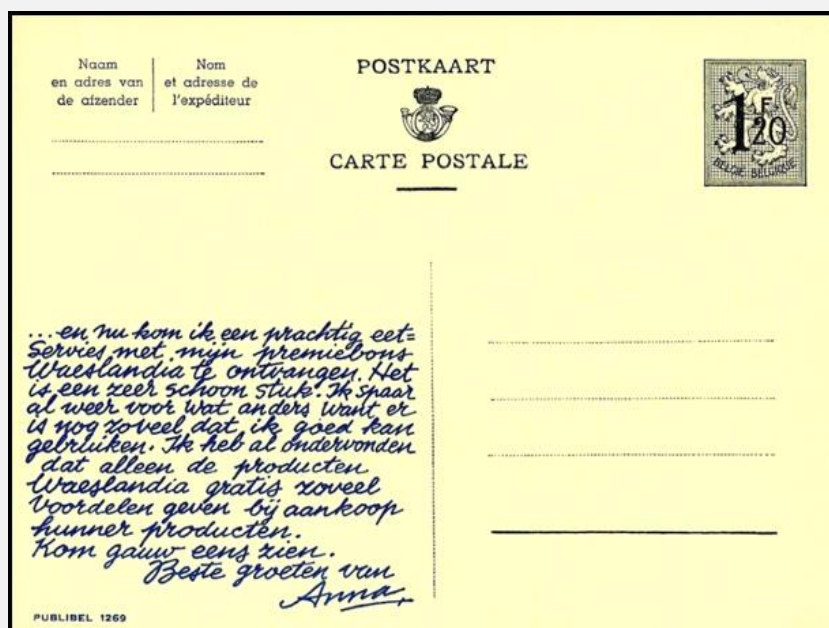 Naam
en adres van
de afzender
Nom
et adresse de
l'expéditeur
POSTKAART
CARTE POSTALE
1F20
BELGIE BELGIQUE
...en nu kom ik een prachtig eet=
Servies met mijn premiebons
Waeslandia te ontvangen. Het
is een zeer schoon stuk. Ik spaar
al weer voor wat anders want er
is nog zoveel dat ik goed kan
gebruiken. Ik heb al ondervonden
dat alleen de producten
Waeslandia gratis zoveel
Voordelen geven bij aankoop
hunner producten.
Kom gauw eens zien.
Beste groeten van
Anna.
PUBLIBEL 1269